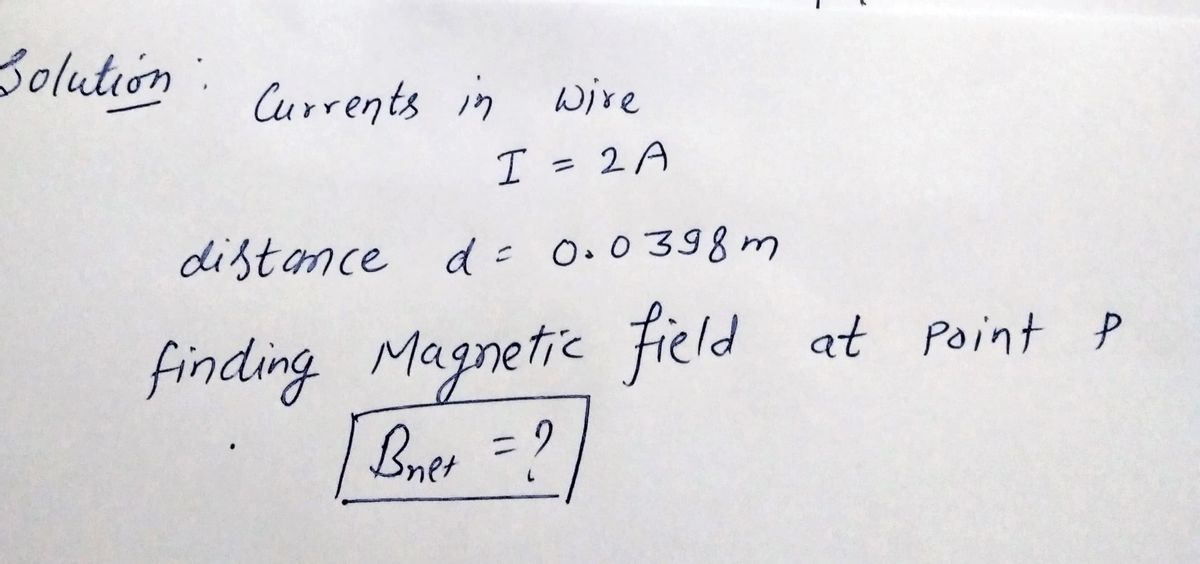 Solution :
Currents in wire
I = 2A
distance d = 0.0398m
finding Magnetic field at Point P
Bnet = ?